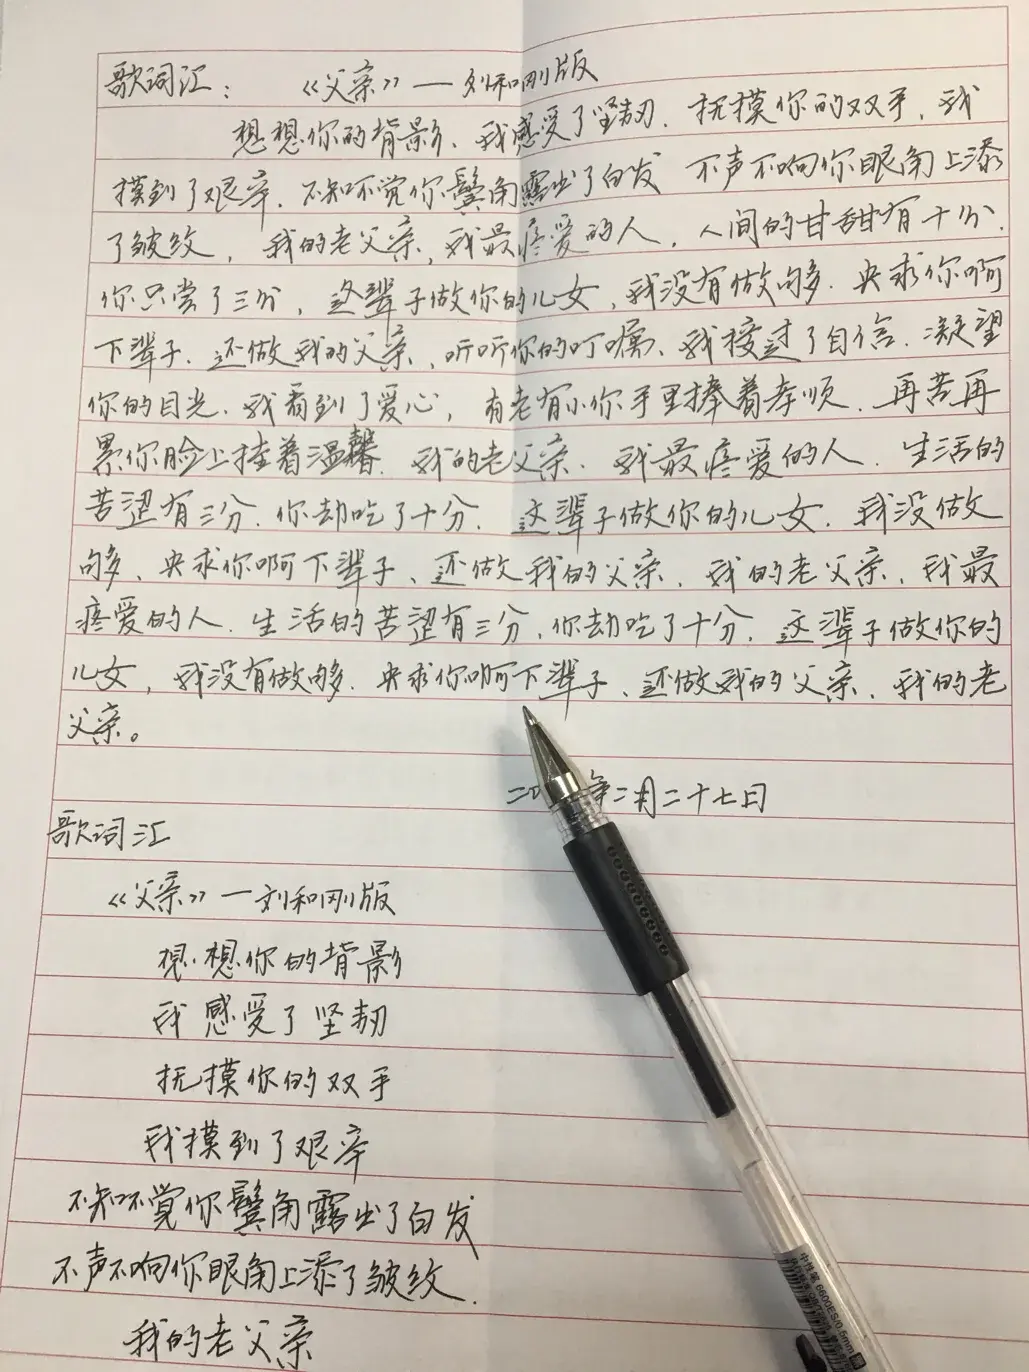 歌词汇: 《父亲》—刘和刚版
想想你的背影、我感受了坚韧. 抚摸你的双手, 我
摸到了艰辛. 不知不觉你鬓角露出了白发 不声不响你眼角上添
了皱纹, 我的老父亲, 我最疼爱的人, 人间的甘甜有十分.
你只尝了三分, 这辈子做你的儿女, 我没有做够. 央求你啊
下辈子. 还做我的父亲, 听听你的叮嘱、我接过了自信. 凝望
你的目光、我看到了爱心, 有老有小你手里捧着孝顺. 再苦再
累你脸上挂着温馨. 我的老父亲. 我最疼爱的人. 生活的
苦涩有三分. 你却吃了十分. 这辈子做你的儿女. 我没做
够、央求你啊下辈子、还做我的父亲. 我的老父亲、我最
疼爱的人. 生活的苦涩有三分. 你却吃了十分. 这辈子做你的
儿女, 我没有做够. 央求你啊下辈子、还做我的父亲. 我的老
父亲。
年二月二十七日
歌词汇
《父亲》—刘和刚版
想想你的背影
我感受了坚韧
抚摸你的双手
我摸到了艰辛
不知不觉你鬓角露出了白发
不声不响你眼角上添了皱纹.
我的老父亲
中性笔 6600ES/0.5mm